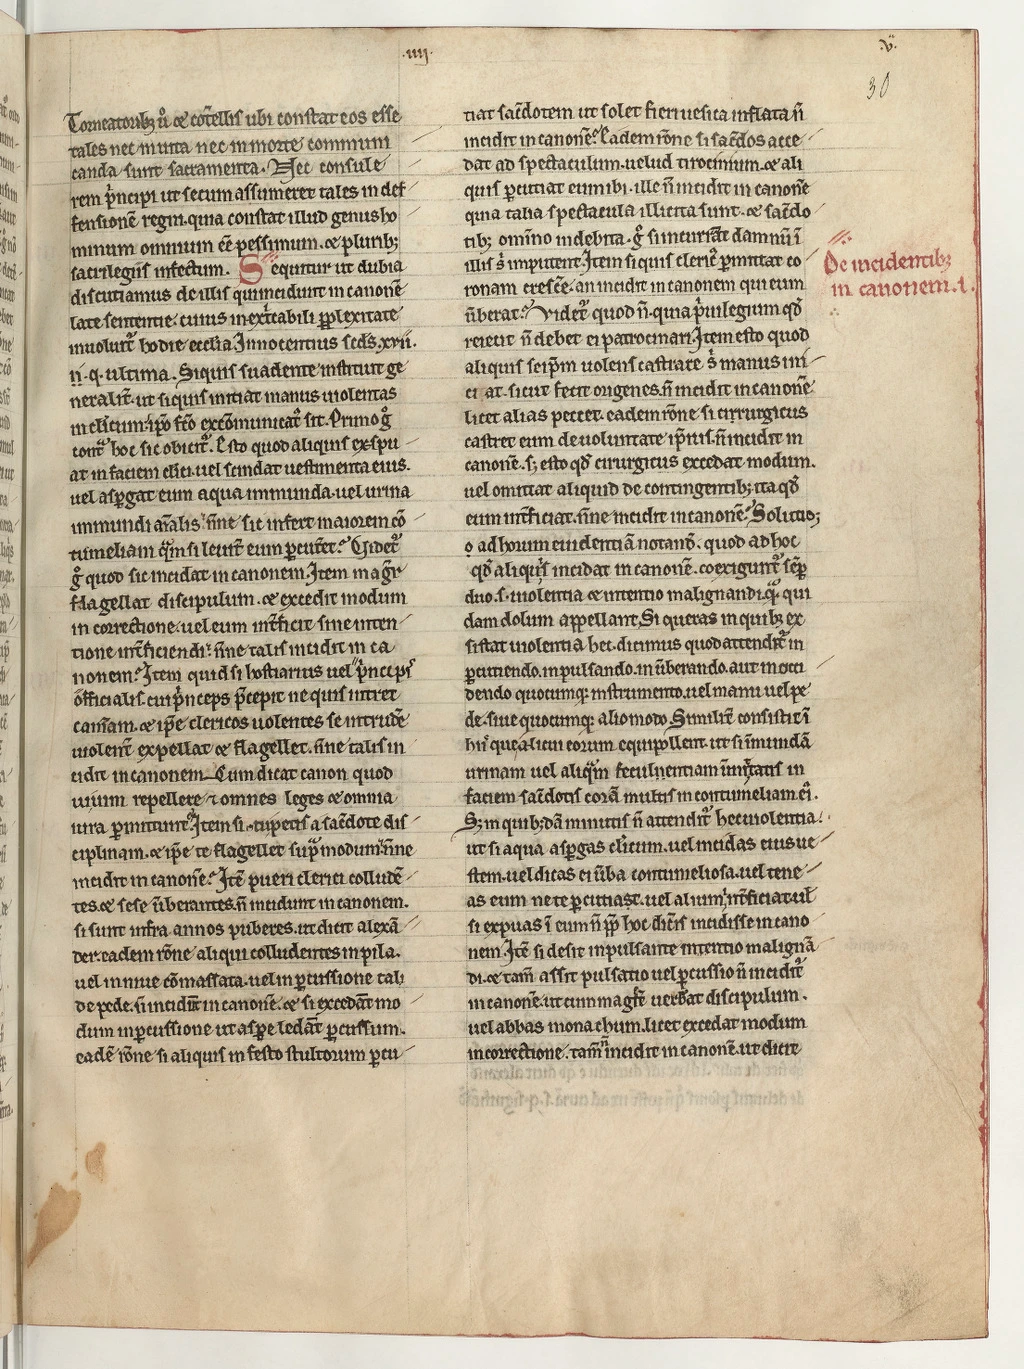 .iiij.
.v.
30
Torneatorib; u͛ ⁊ cot̄ellis ubi constat eos esse
tales nec in uita nec in morte communi
canda sunt sacramenta. Nec consule
rem p͛ncipi ut secum assumeret tales in def
fensionē regni. quia constat illud genus ho
minum omnium eē pessimum. ⁊ plurib;
sacrilegiis infectum. Sequitur ut dubia
discutiamus de illis qui incidunt in canonē
late sententie. cuius inext͛cabili ꝑplexitate
inuoluit᷑ hodie ecc̄lia. Innocentius scd̄s. xvii.
ii. q. ultima. Siquis suadente instituit ge
neralit͛. ut siquis iniciat manus uiolentas
in cl̄icum. ip̄o fc̄o excōmunicat᷑ sit. Primo g͛
cont͛ hoc sic obicit᷑. Esto quod aliquis exspu
at in faciem cl̄ici. uel scindat uestimenta eius.
uel asꝑgat eum aqua immunda. uel urina
immundi aīalis. nōne sic infert maiorem cō
tumeliam q̄m si leuit͛ eum ꝑcut͛et? Videt᷑
g͛ quod sic incidat in canonem. Item mag͛r
flagellat discipulum. ⁊ excedit modum
in correctione. uel eum int͛ficit sine inten
tione int͛ficiendi. nōne talis incidit in ca
nonem? Item quid si hostiarius uel p͛nceps
officialis. cui p͛nceps p̄cepit ne quis intret
cam̄am. ⁊ ip̄e clericos uolentes se intrudē
uiolent͛ expellat ⁊ flagellet. nōne talis in
cidit in canonem. Cum dicat canon quod
uim ui repellere ⁊ omnes leges ⁊ omnia
iura ꝑmittunt. Item si tu petis a sac̄dote dis
ciplinam. ⁊ ip̄e te flagellet sup͛ modum. nōne
incidit in canonē? Itē pueri clerici colludē
tes. ⁊ sese u͛berantes. n̄ incidunt in canonem.
si sunt infra annos puberes. ut dicit alexā
der. eadem rōne aliqui colludentes in pila.
uel in niue cōmassata. uel in ꝑcussione tali
de pede. n̄ incidūt in canonē. ⁊ si excedāt mo
dum in ꝑcussione ut asꝑe ledāt ꝑcussum.
eadē rōne si aliquis in festo stultorum ꝑcu
tiat sac̄dotem ut solet fieri uesica inflata n̄
incidit in canonē? Eadem rōne si sac̄dos acce
dat ad spectaculum. uelud tirocinium. ⁊ ali
quis ꝑcutiat eum ibi. ille n̄ incidit in canonē
quia talia spectacula illicita sunt. ⁊ sac̄do
tib; omīno indebita. g͛ si incurrāt damnū ī
illis s̄ imputent. Item si quis cleric͛ ꝑmittat co
ronam cresce͛. an incidit in canonem qui eum
u͛berat? Videt᷑ quod n̄. quia p͛uilegium qd̄
reiecit n̄ debet ei patrocinari. Item esto quod
aliquis seip̄m uolens castrare. s̄ manus ini
ci at. sicut fecit origenes. n̄ incidit in canonē
licet alias peccet. eadem rōne si cirurgicus
castret eum de uoluntate ip̄ius. n̄ incidit in
canonē. s; esto qd̄ cirurgicus excedat modum.
uel omittat aliquid de contingentib; ita qd̄
eum int͛ficiat. nōne incidit in canonē? Solutio;
o ad horum euidentiā notand̄. quod ad hoc
qd̄ aliquis incidat in canonē. coexigunt᷑ semꝑ
duo. s. uiolentia ⁊ intentio malignandi. qui
dam dolum appellant. Si queras in quib; ex
sistat uiolentia hec. dicimus quod attendit᷑ in
ꝑcutiendo. inpulsando. in u͛berando. aut in occi
dendo quocumq; instrumento. uel manu uel pe
de. siue quocumq; alio modo. Similit͛ consistit ī
hiis que alicui eorum equipollent. ut si īmundā
urinam uel aliq̄m feculentiam īmittatis in
faciem sac̄dotis corā multis in contumeliam ei͛.
S; in quib;dā minutis n̄ attendit᷑ hec uiolentia.
ut si aqua asꝑgas cl̄icum. uel incidas eius ue
stem. uel dicas ei u͛ba contumeliosa. uel tene
as eum ne te ꝑcutiat. uel alium int͛ficiat. ul̄
si expuas ī eum n̄ ꝓpt̄ hoc d͛ceris incidisse in cano
nem. Itē si desit inpulsante intentio malignā
di. ⁊ tam̄ assit pulsatio uel ꝑcussio n̄ incidit᷑
in canonē. ut cum magist͛ uerb͛at discipulum.
uel abbas monachum. licet excedat modum
in correctione. tam̄ n̄ incidit in canonē. ut dicit
De incidentib;
in canonem. i.